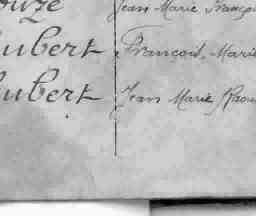 Jean Marie François
ubert François, Marie
ubert Jean Marie Raou